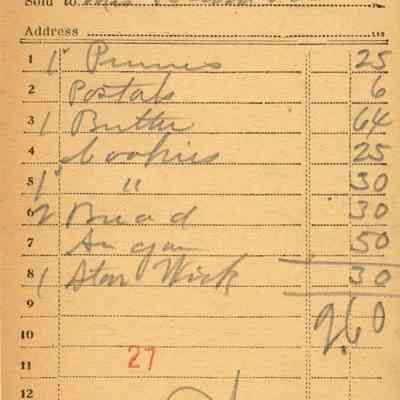 Sold to Mrs
Address
1 1" Prunes 25
2 Postals 6
3 1 Butter 64
4 Cookies 25
5 1" " 30
6 2 Bread 30
7 Sugar 50
8 1 Star Wick 30
9 2.60
10
11 27
12